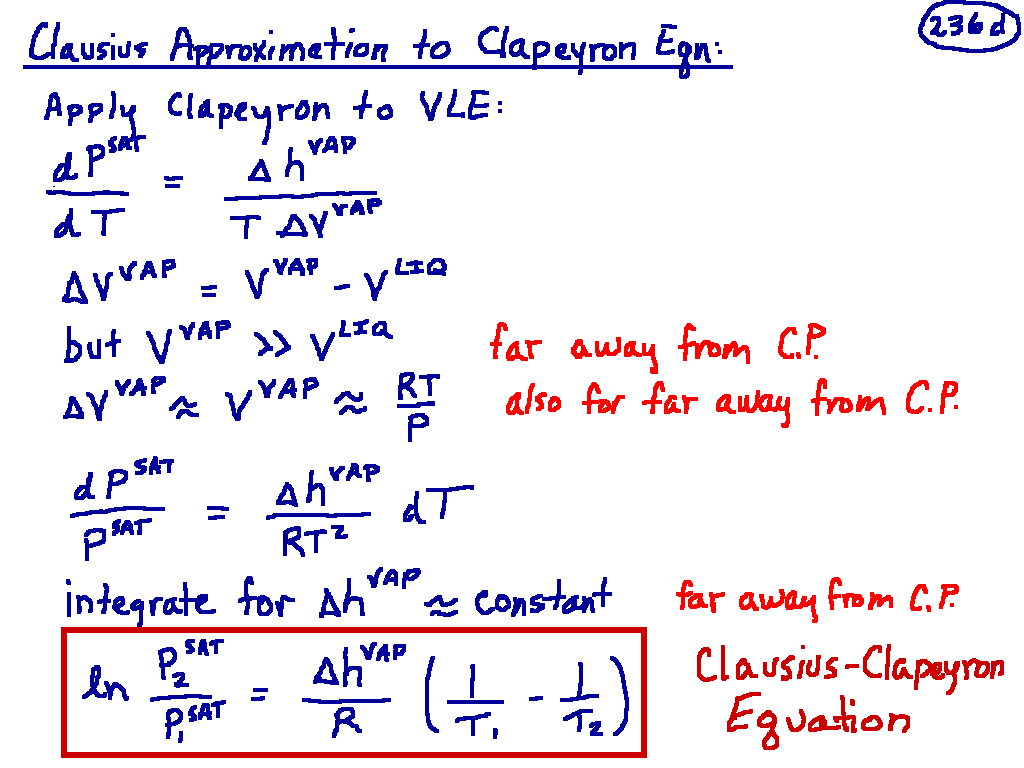 Clausius Approximation to Clapeyron Eqn: 236d
Apply Clapeyron to VLE:
dP^SAT / dT = Δh^VAP / (T ΔV^VAP)
ΔV^VAP = V^VAP - V^LIQ
but V^VAP >> V^LIQ far away from C.P.
ΔV^VAP ≈ V^VAP ≈ RT/P also for far away from C.P.
dP^SAT / P^SAT = Δh^VAP / RT² dT
integrate for Δh^VAP ≈ constant far away from C.P.
ln P₂^SAT / P₁^SAT = Δh^VAP / R (1/T₁ - 1/T₂) Clausius-Clapeyron
Equation